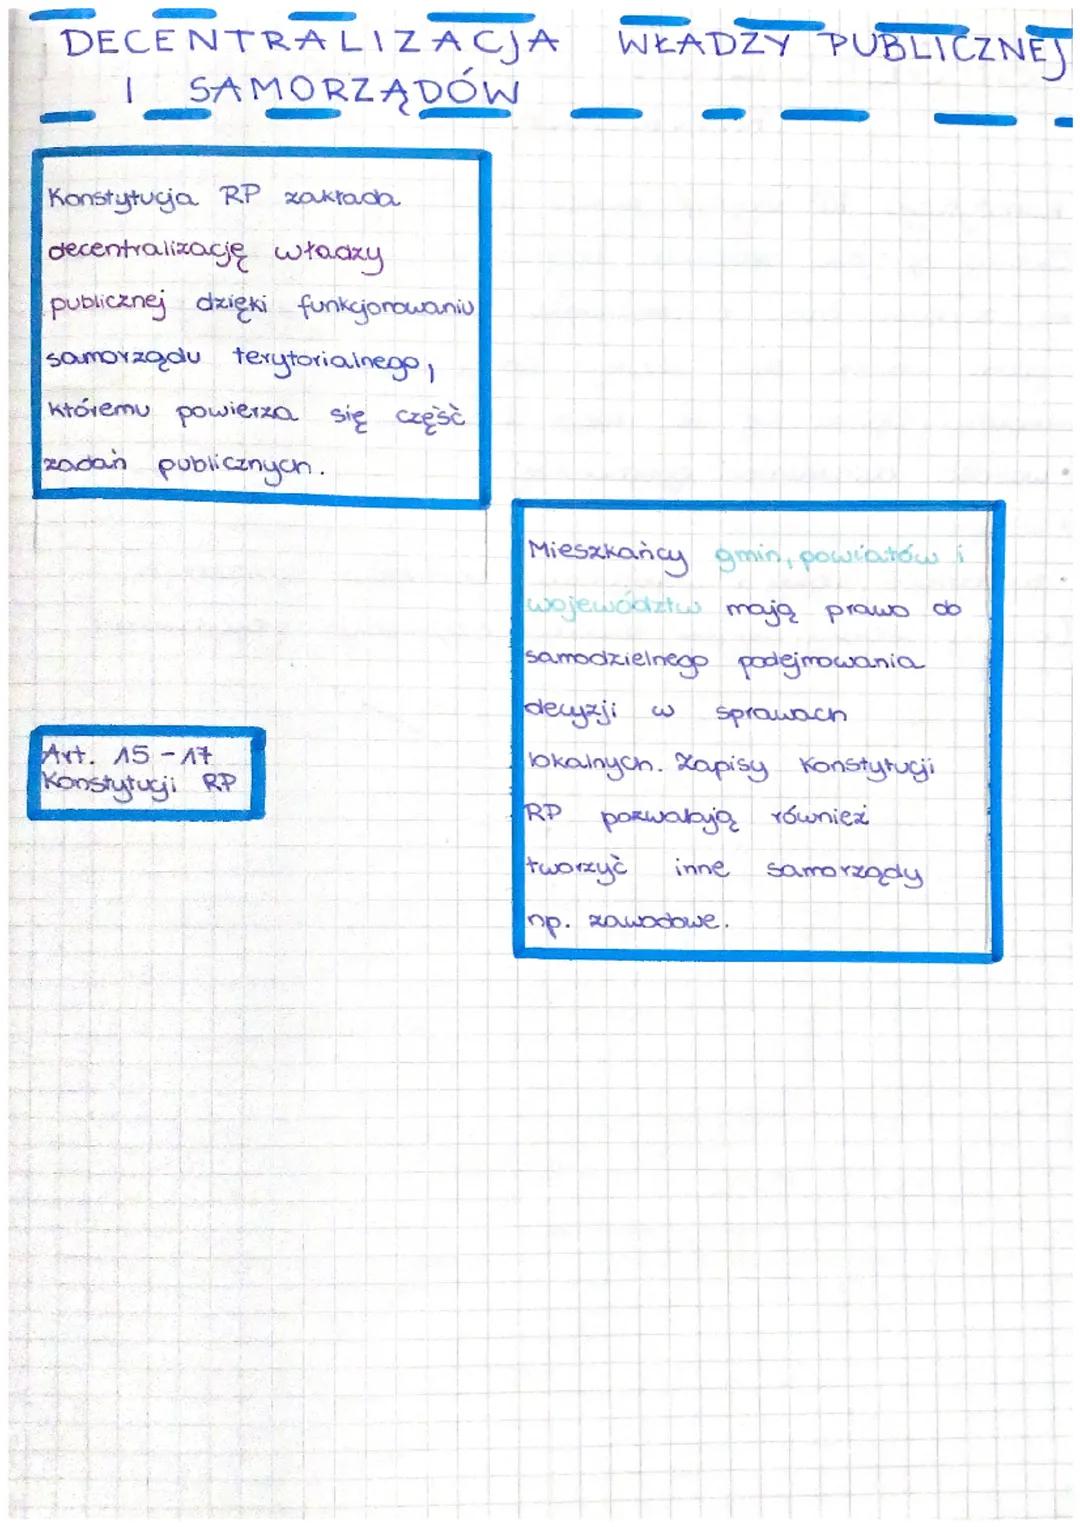 DECENTRALIZACJA WŁADZY PUBLICZNEJ
I SAMORZĄDÓW
Konstytucja RP zakłada
decentralizację władzy
publicznej dzięki funkcjonowaniu
samorządu terytorialnego,
któremu powierza się część
zadań publicznych.
Mieszkańcy gmin, powiatów i
województw mają prawo do
samodzielnego podejmowania
decyzji w sprawach
lokalnych. Zapisy Konstytucji
RP pozwalają również
tworzyć inne samorządy
np. zawodowe.
Art. 15-17
Konstytucji RP